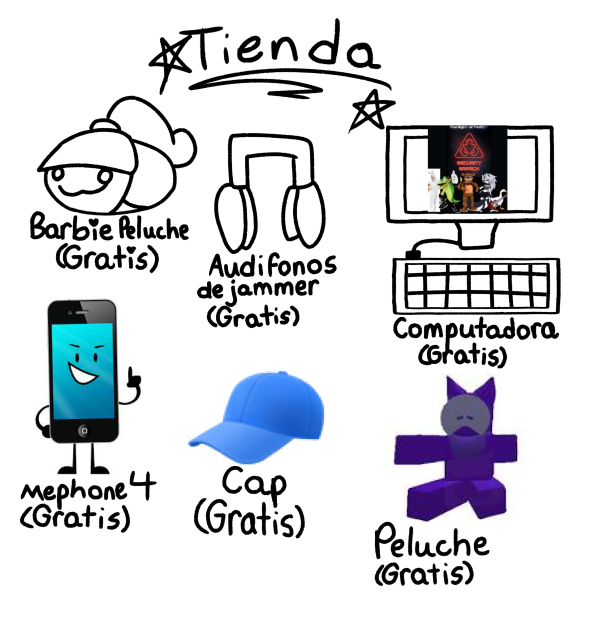 Tienda
Barbie Peluche
(Gratis)
Audifonos
de jammer
(Gratis)
SECURITY
BREACH
Computadora
(Gratis)
mephone 4
(Gratis)
Cap
(Gratis)
Peluche
(Gratis)